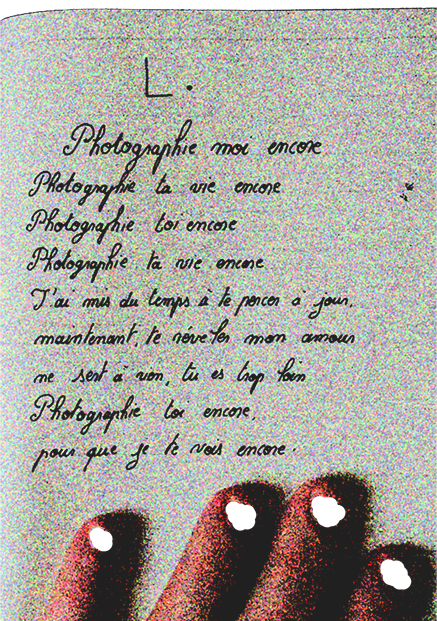 L.
Photographie moi encore
Photographie ta vie encore
Photographie toi encore
Photographie ta vie encore
J'ai mis du temps à te percer à jour,
maintenant, te révéler mon amour
ne sert à rien, tu es trop loin
Photographie toi encore,
pour que je te vois encore.